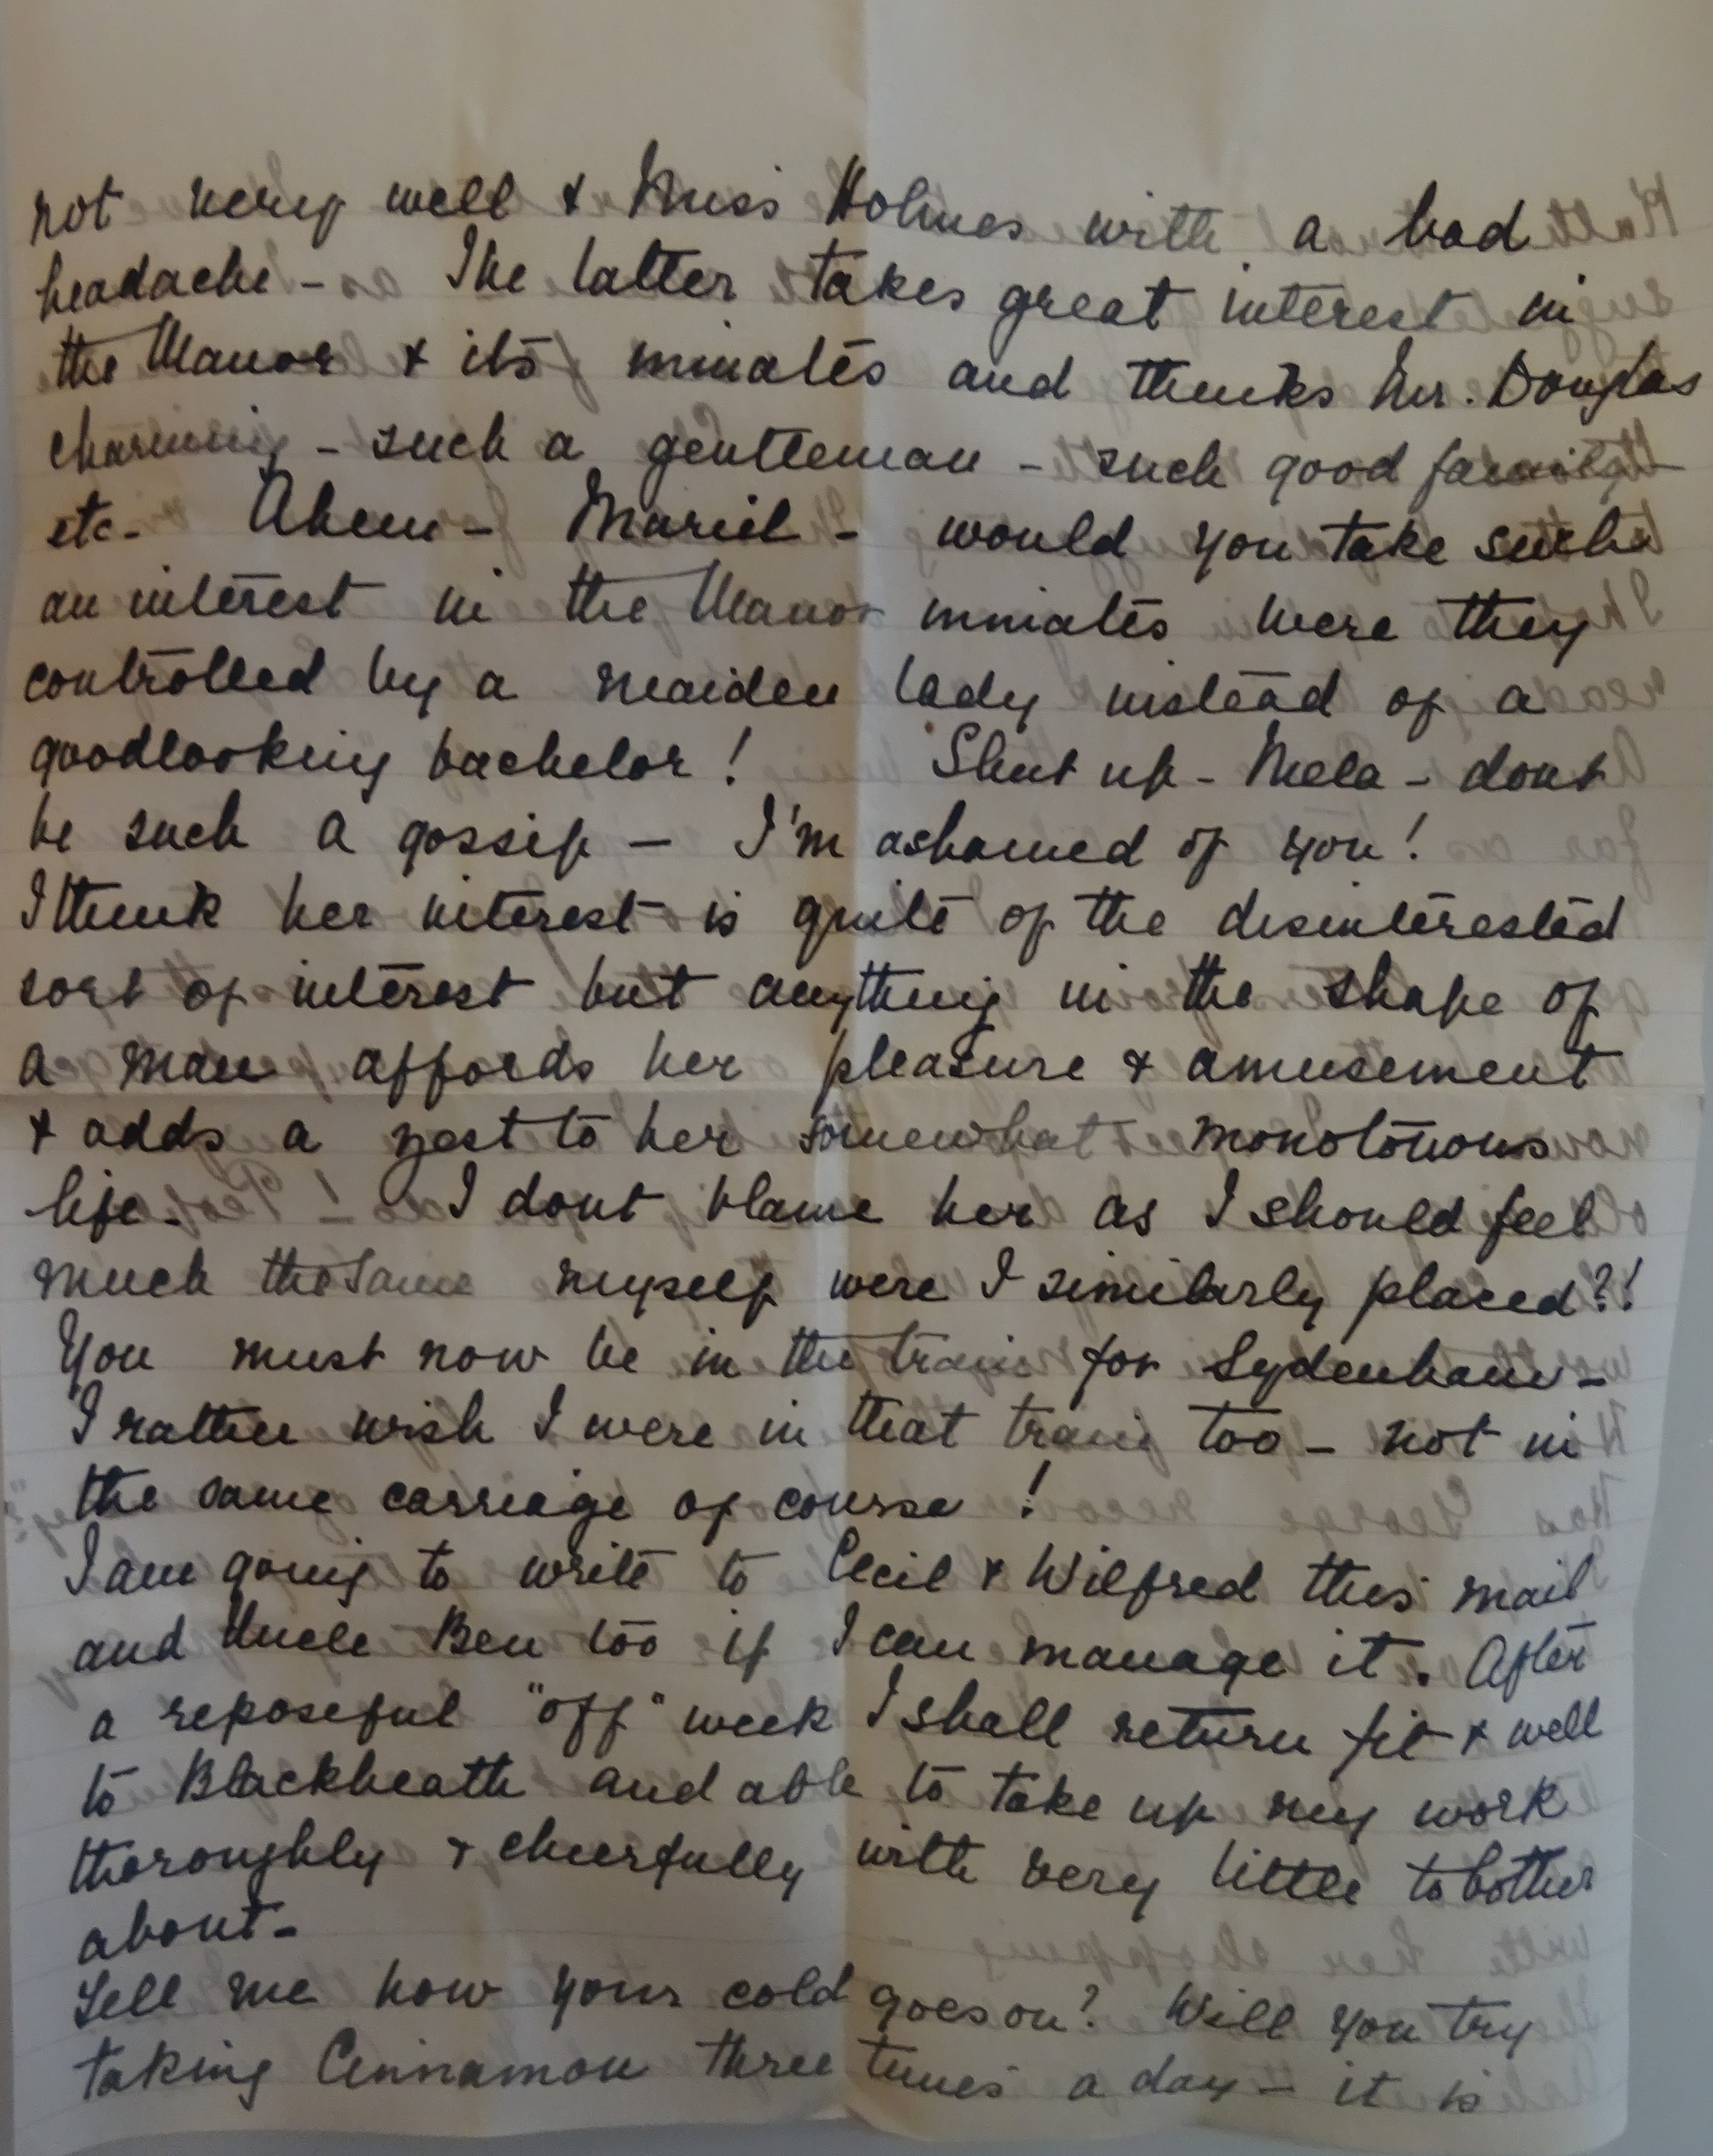 not very well & Miss Holmes with a bad
headache - The latter takes great interest in
the Manor & its inmates and thinks Mr. Douglas
charming - such a gentleman - such good family -
etc - Ahem - Muriel - would you take such
an interest in the Manor inmates were they
controlled by a maiden lady instead of a
goodlooking bachelor! Shut up - Mela - dont
be such a gossip - I'm ashamed of you!
I think her interest is quite of the disinterested
sort of interest but anything in the shape of
a man affords her pleasure & amusement
& adds a zest to her somewhat monotonous
life - I dont blame her as I should feel
much the same myself were I similarly placed?!
You must now be in the train for Sydenham -
I rather wish I were in that train too - not in
the same carriage of course!
I am going to write to Cecil & Wilfred this mail
and Uncle Ben too if I can manage it. After
a reposeful "off" week I shall return fit & well
to Blackheath and able to take up my work
thoroughly & cheerfully with very little to bother
about -
Tell me how your cold goes on? Will you try
taking Cinnamon three times a day - it is